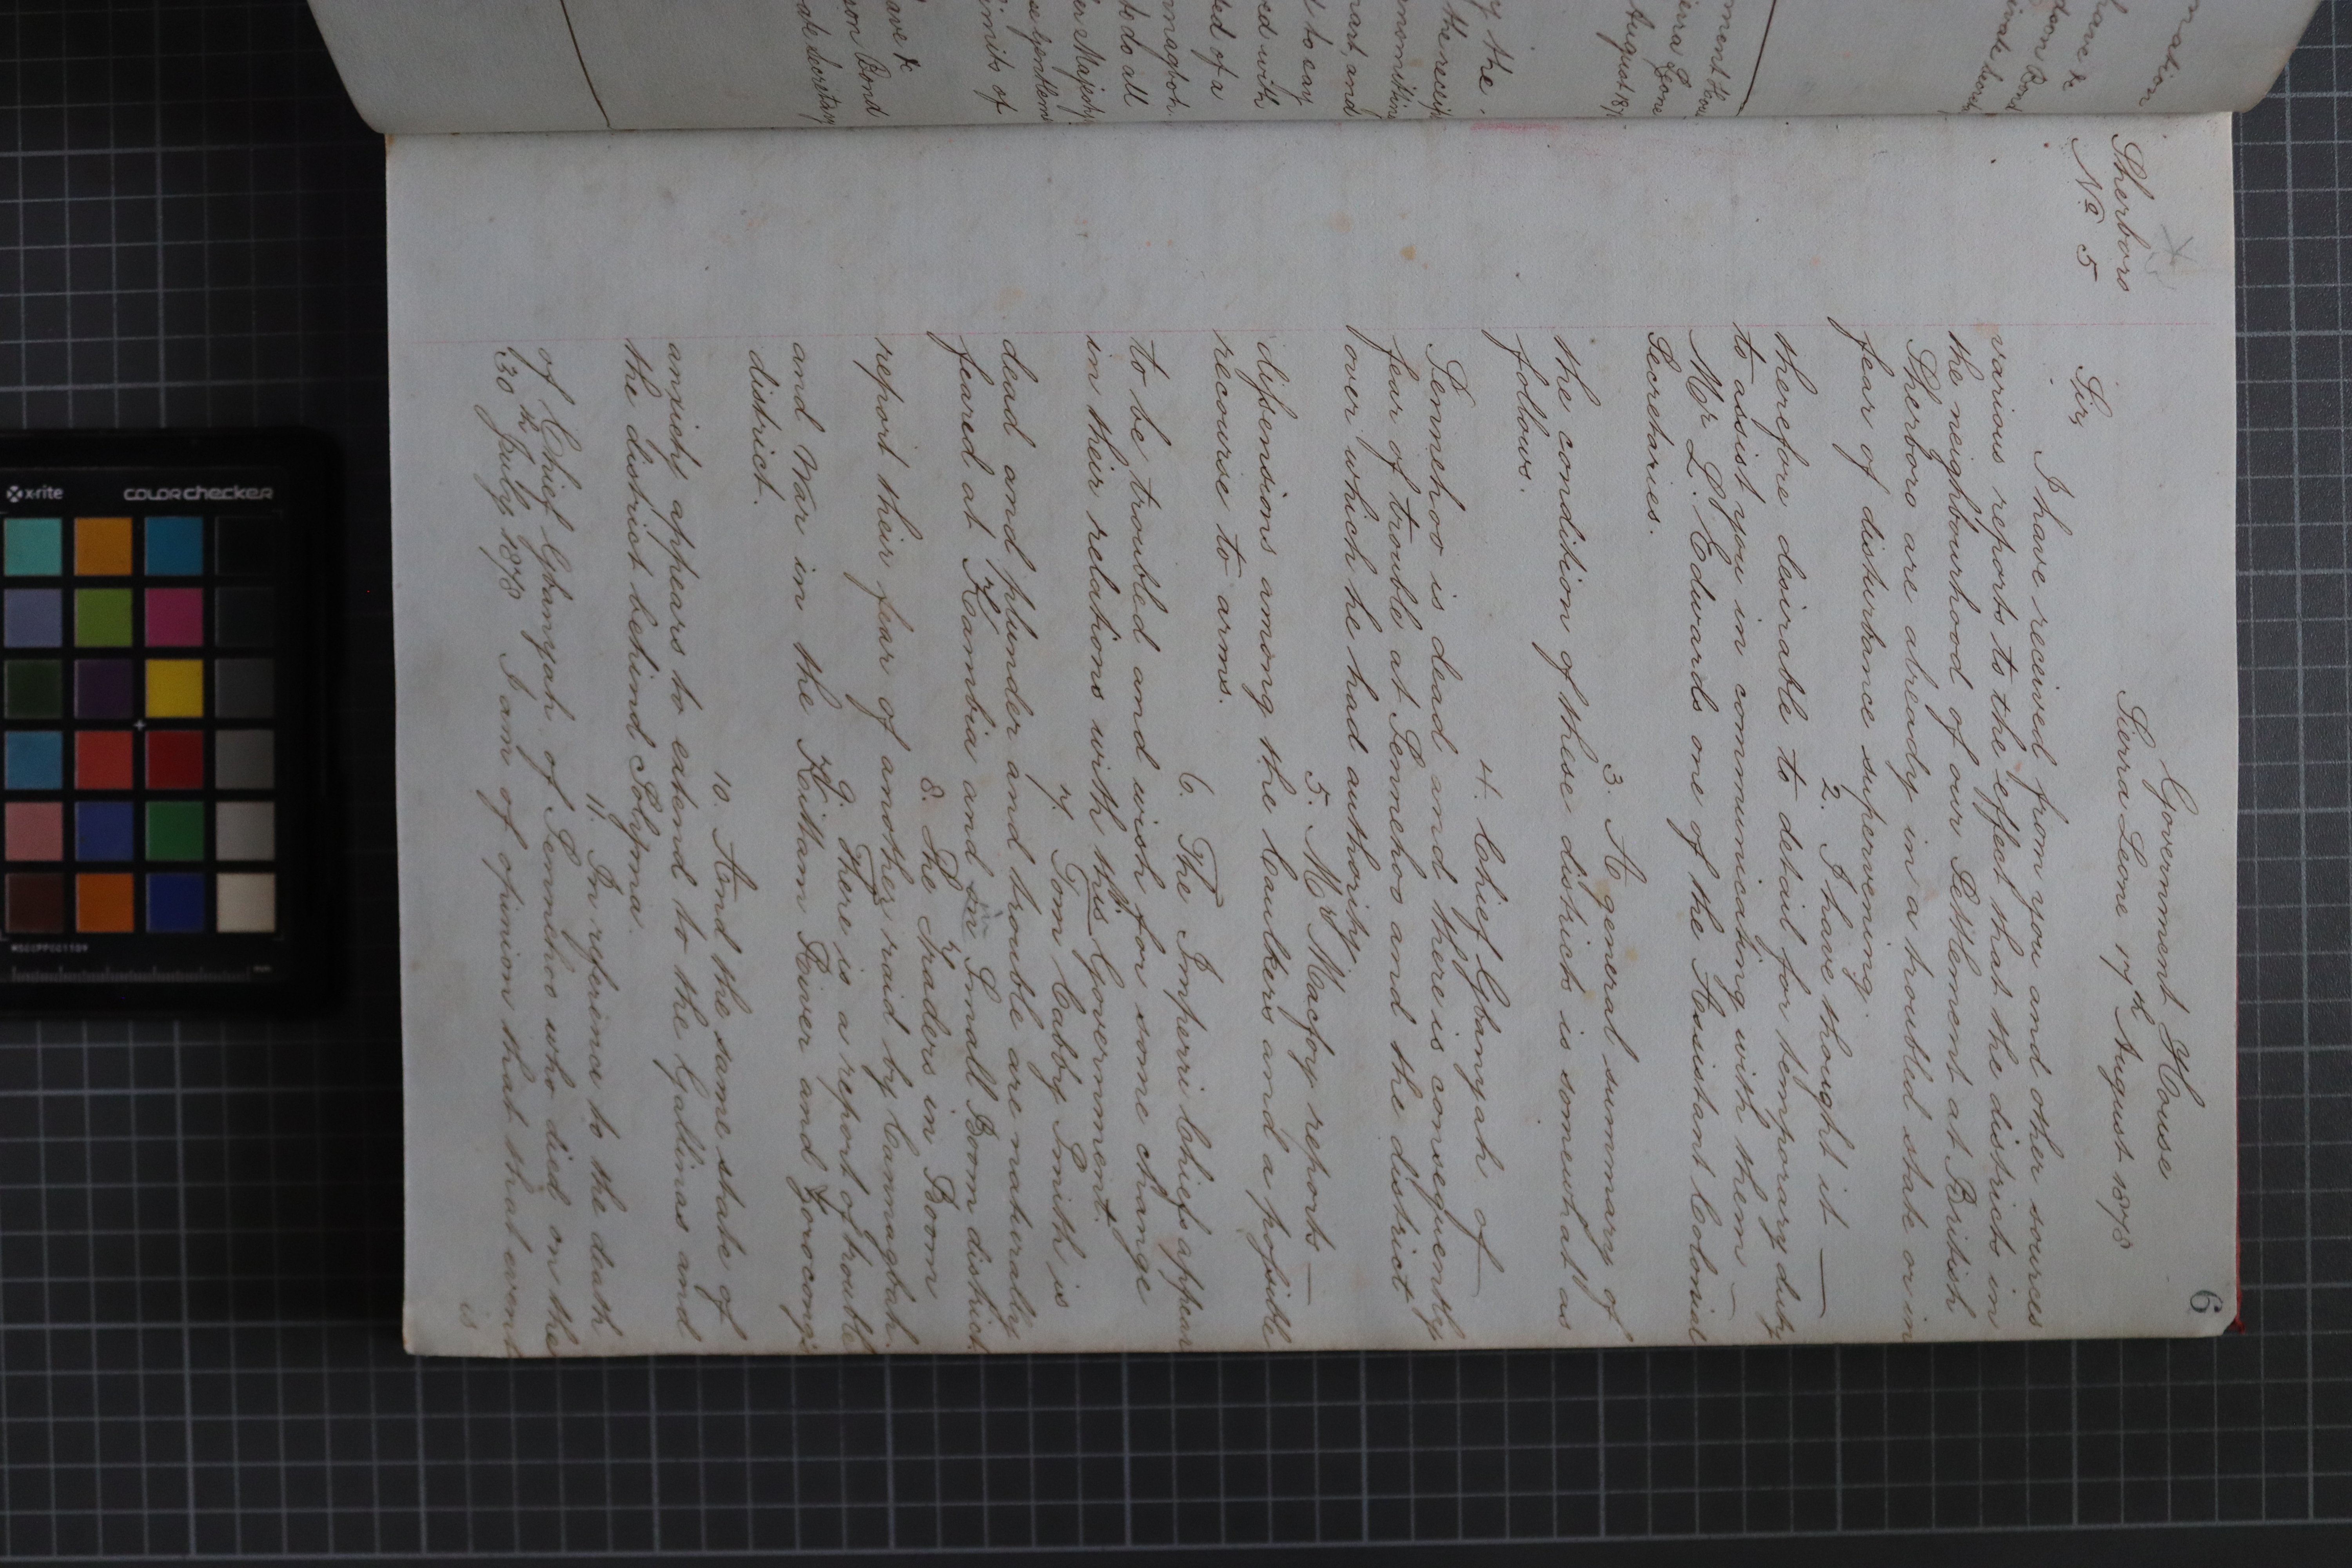 6
Government House
Sierra Leone 17th August 1878
Sherboro
No 5
Sir,
I have received from you and other sources
various reports to the effect that the districts in
the neighbourhood of our Settlement at British
Sherboro are already in a troubled state or in
fear of disturbance supervening.
2. I have thought it —
therefore desirable to detail for temporary duty
to assist you in communicating with them —
Mr L. Edwards one of the Assistant Colonial
Secretaries.
3. A general summary of
the condition of these districts is somewhat as
follows.
4. Chief Gbanyah of —
Sennehoo is dead and there is consequently
fear of trouble at Sennehoo and the district
over which he had authority.
5. Mr Macfoy reports —
dissensions among the Caulkers and a possible
recourse to arms.
6. The Imperri Chiefs appear
to be troubled and wish for some change
in their relations with this Government.
7. Tom Cabby Smith is
dead and plunder and trouble are materially
feared at Kambia and in Small Boom district
8. The Traders in Boom
report their fear of another raid by Cannagbah.
9. There is a report of trouble
and War in the Kittam River and Jorocong's
district.
10. And the same state of
anxiety appears to extend to the Gallinas and
the district behind Solyma.
11. In reference to the death
of Chief Gbanyah of Sennehoo who died on the
30th July 1878 I am of opinion that that event
is
mation
have &c
son Bond
ivate Secret
ment House
ierra Leone
August 187
y the
the receipt
ansmitting
mart, and
to say
ed with
ed of a
nnagbah
to do all
er Majesty
se gentlemen
imits of
ave &c
son Bond
ate Secretary
x-rite
colorchecker
MSCCPPCC1109